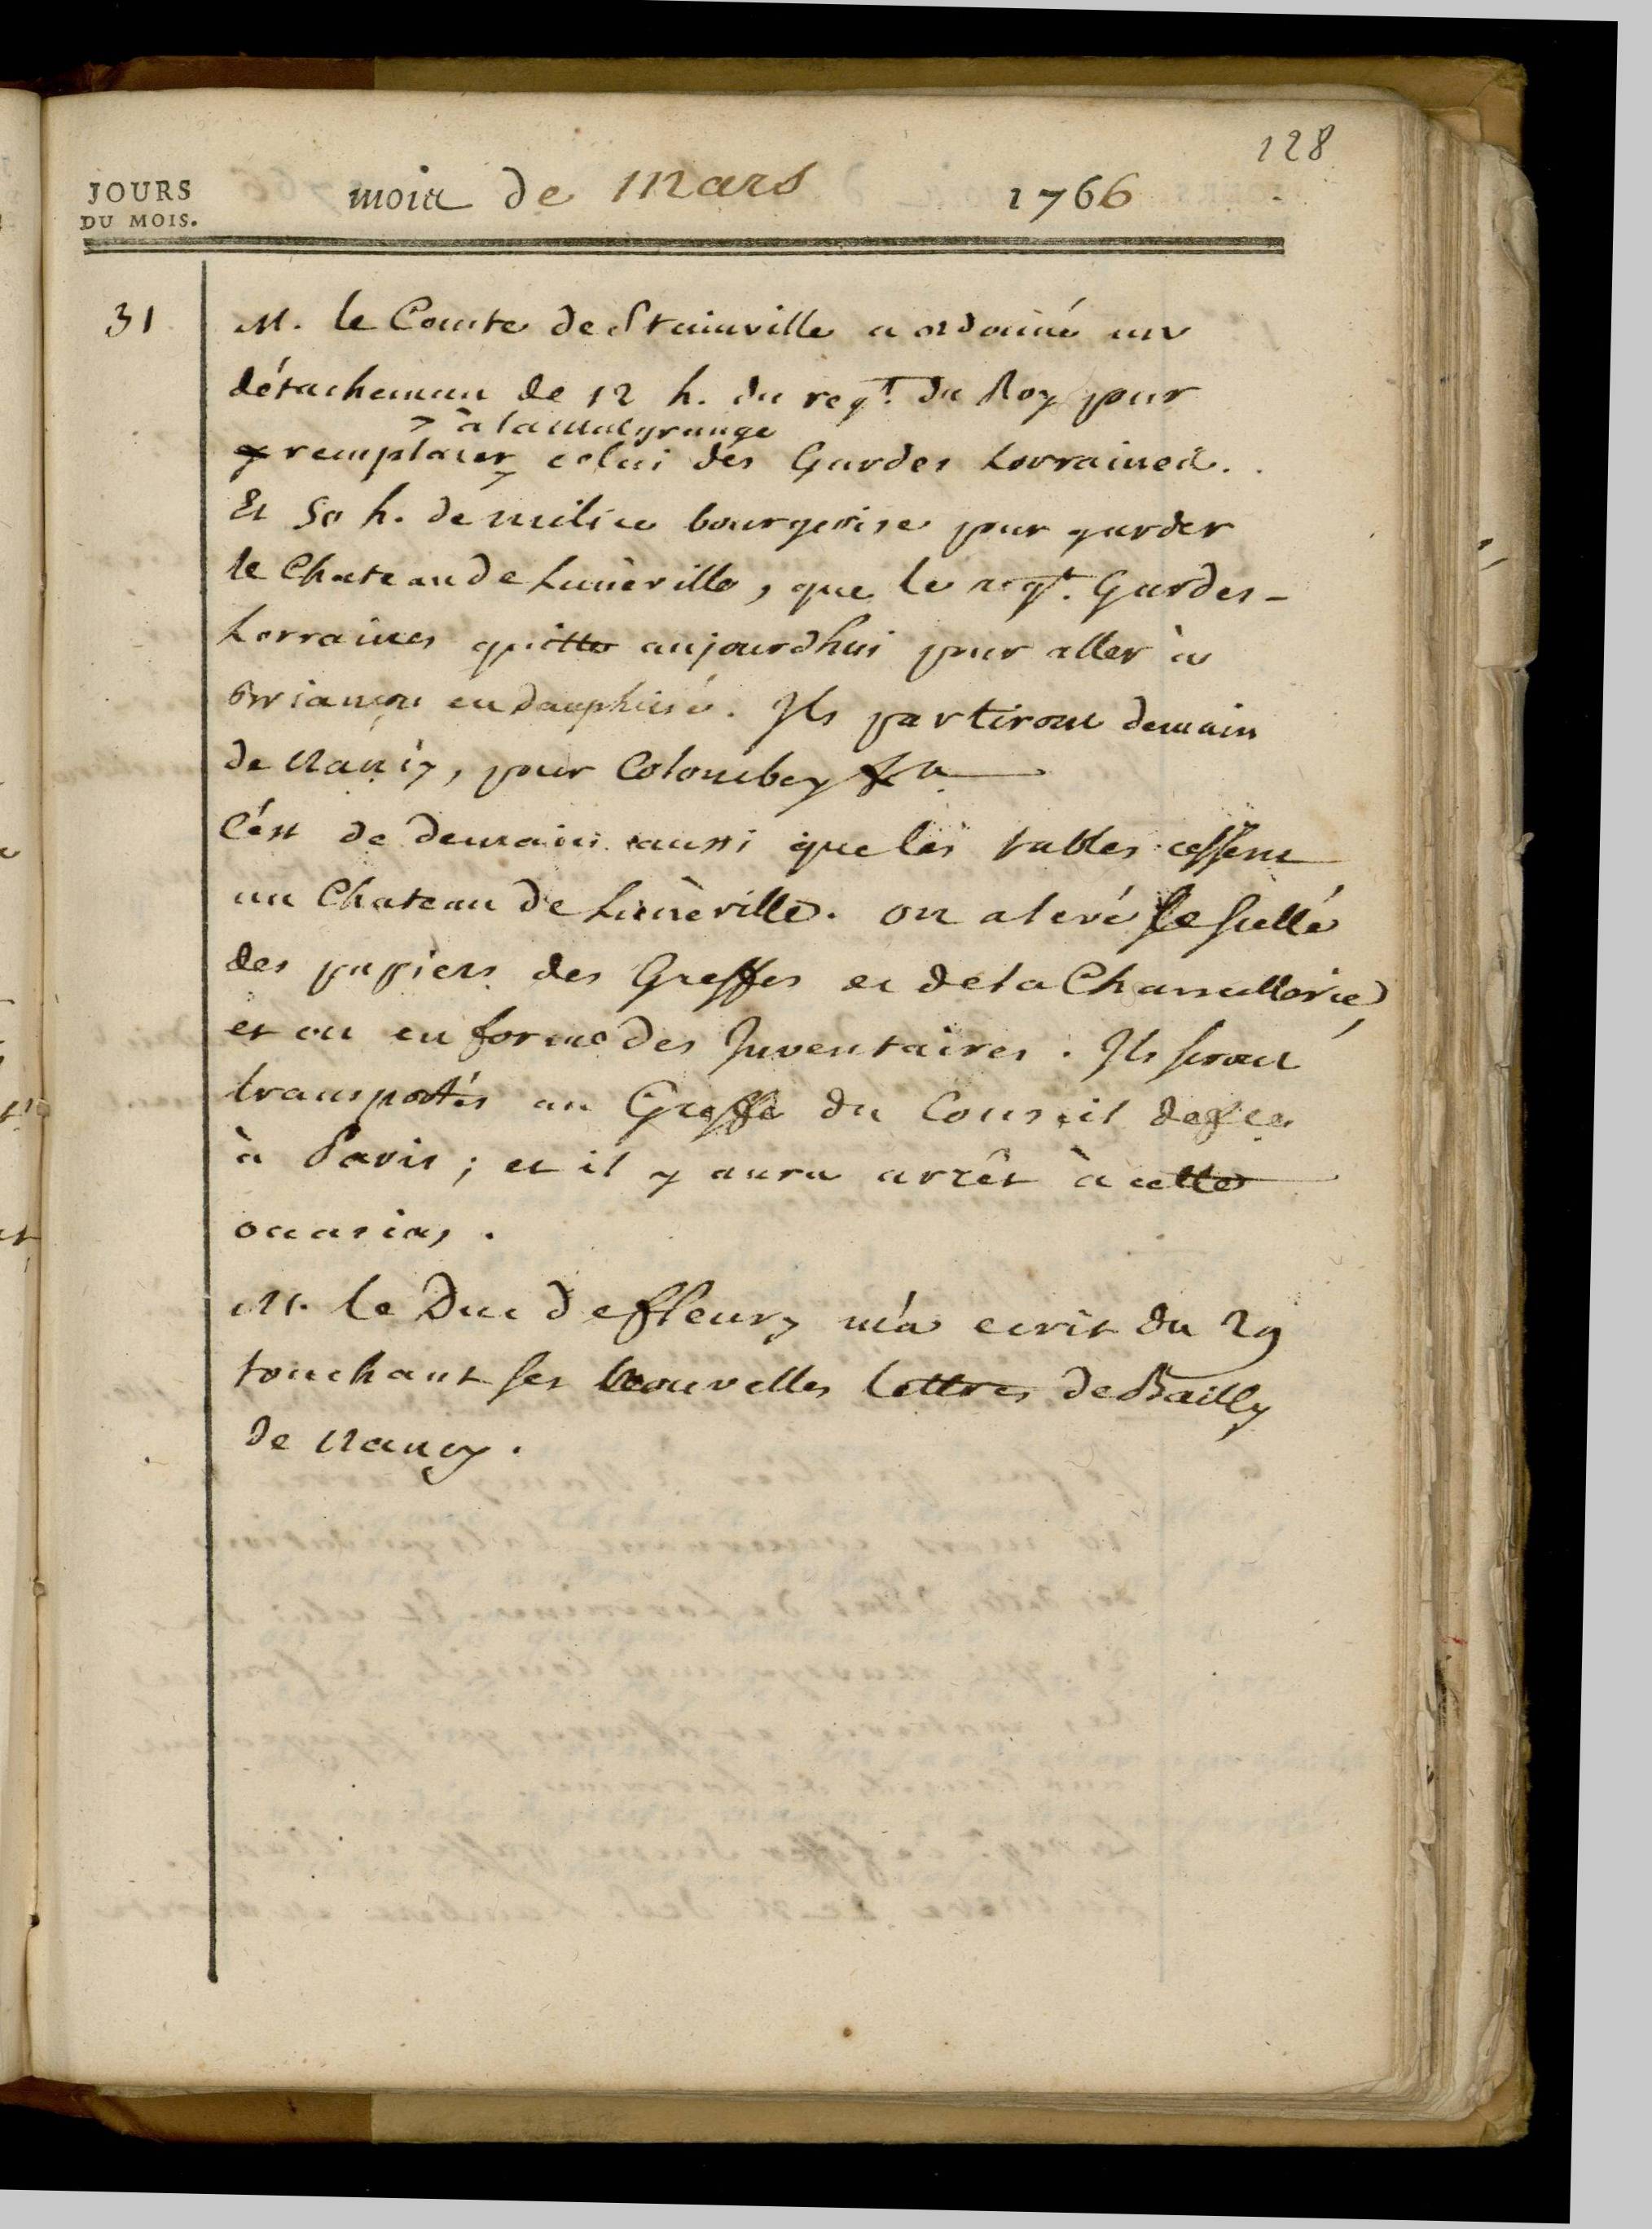 128
JOURS
DU MOIS.
mois de Mars 1766
31 M. le Comte de Stainville a ordonné un
détachement de 12 h. du regt. du Roy pour
à la Malgrange
remplacer celui des Gardes Lorraines.
Et 50 h. de milice bourgeoise pour garder
le Chateau de Lunéville, que le regt. Gardes-
Lorraines quitte aujourdhui pour aller à
Briançon en dauphiné. Ils partiront demain
de Nancy, pour Colombey &a
C'est de demain aussi que les tables cessent
au Chateau de Lunéville. on a levé le scellé
des papiers des Greffes et de la Chancellerie,
et on en forme des Inventaires. Ils seront
transportés au Greffe du Conseil
à Paris ; et il y aura arrêt à cette
occasion.
M. le Duc de fleury m'a ecrit du 29
touchant ses nouvelles lettres de Bailly
de Nancy.